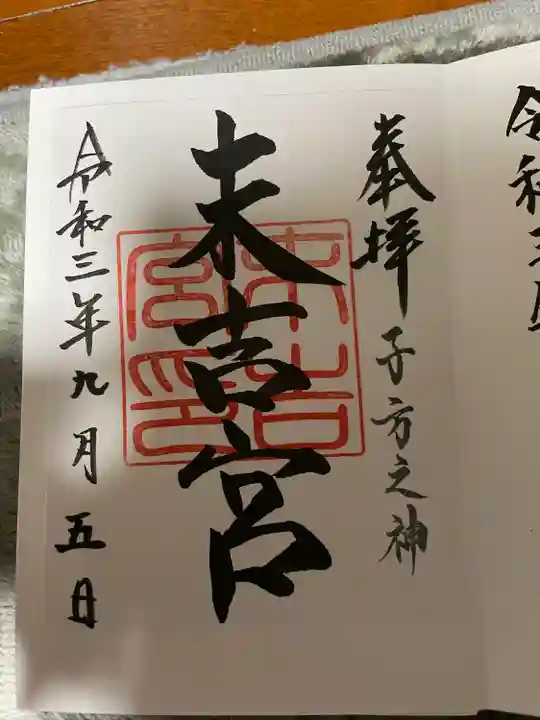 令和三
奉拝 子方之神
末吉宮
末吉宮印
令和三年九月五日